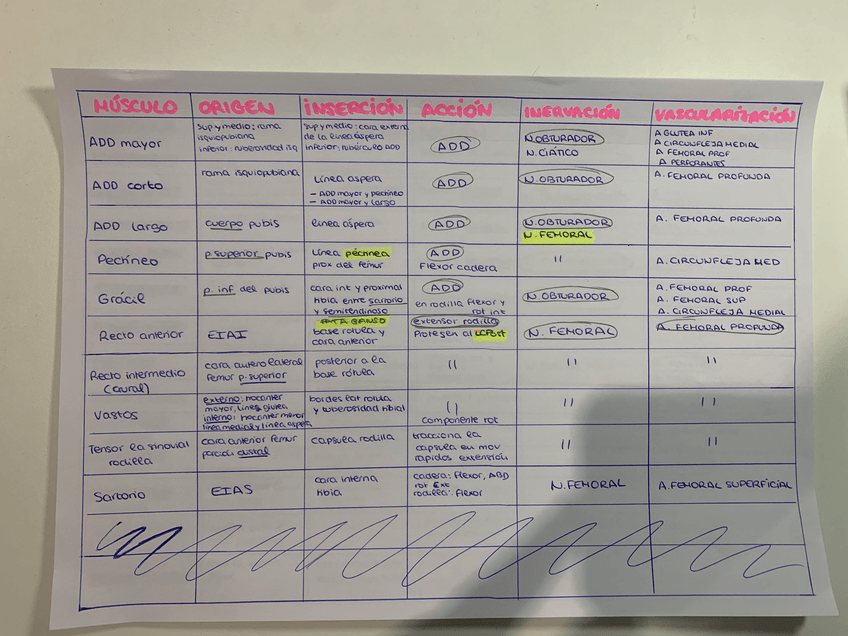 MÚSCULO ORIGEN INSERCIÓN ACCIÓN INERVACIÓN VASCULARIZACIÓN
ADD mayor
sup y medio: rama
isquiopubiana
inferior: tuberosidad isq
sup y medio: cara externa
de la linea áspera
inferior: tubérculo ADD
ADD
N. OBTURADOR
N. CIÁTICO
A GLUTEA INF
A CIRCUNFLEJA MEDIAL
A FEMORAL PROF
A PERFORANTES
ADD corto
rama isquiopubiana
Línea aspera
- ADD mayor y pectineo
- ADD mayor y largo
ADD
N. OBTURADOR
A. FEMORAL PROFUNDA
ADD largo
cuerpo pubis
linea áspera
ADD
N. OBTURADOR
N. FEMORAL
A. FEMORAL PROFUNDA
Pectíneo
p. superior pubis
Línea péctinea
prox del femur
ADD
Flexor cadera
"
A. CIRCUNFLEJA MED
Grácil
p. inf del pubis
cara int y proximal
tibia entre sartorio
y semitendinoso
PATA GANSO
ADD
en rodilla flexor y
rot int
N. OBTURADOR
A. FEMORAL PROF
A. FEMORAL SUP
A. CIRCUNFLEJA MEDIAL
Recto anterior
EIAI
base rotula y
cara anterior
extensor rodilla
Protegen al
N. FEMORAL
A. FEMORAL PROFUNDA
Recto intermedio
(crural)
cara anterolateral
femur p. superior
posterior a la
base rótula
"
"
"
Vastos
externo: trocanter
mayor, linea glutea
interno: trocanter menor
linea medial y linea aspera
bordes lat rotula
y tuberosidad tibial
"
componente rot
"
"
Tensor la sinovial
rodilla
cara anterior femur
porción distal
capsula rodilla
tracciona la
capsula en mov
rapidos extensión
"
"
Sartorio
EIAS
cara interna
tibia
cadera: flexor, ABD
rot ext
rodilla: flexor
N. FEMORAL
A. FEMORAL SUPERFICIAL